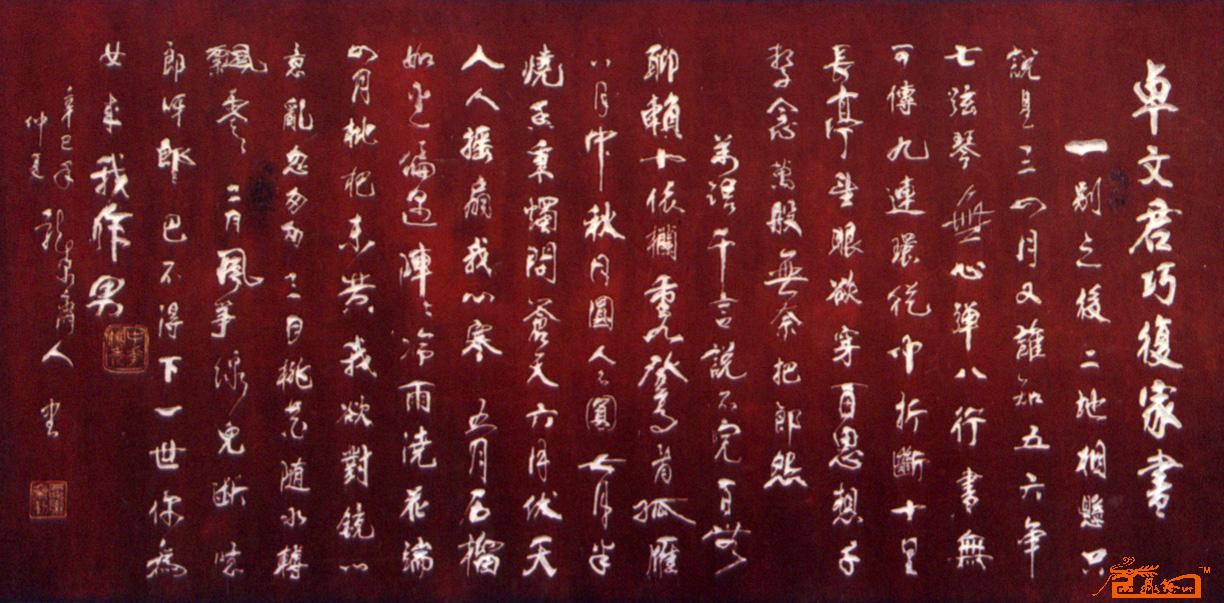 卓文君巧復家書
一别之後二地相懸只
說是三四月又誰知五六年
七弦琴無心弹八行書無
可傳九連環從中折斷十里
長亭望眼欲穿百思想千
繫念萬般無奈把郎怨
萬語千言說不完百無
聊賴十依欄重九登高看孤雁
八月中秋月圓人々圓七月半
燒香秉燭問蒼天六月伏天
人人摇扇我心寒五月石榴
如火偏遇陣々冷雨澆花端
四月枇杷未黄我欲對鏡心
意亂忽匆匆三月桃花随水轉
飄零々二月風筝線兒断噫
郎呀郎巴不得下一世你為
女来我作男
辛巳年
仲夏
人書